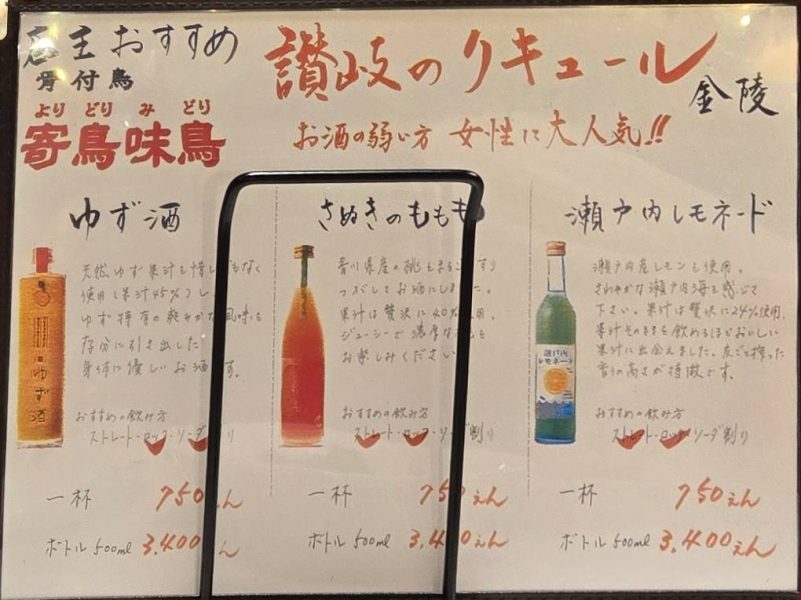 店主おすすめ
骨付鳥
よりどりみどり
寄鳥味鳥
讃岐のリキュール
金陵
お酒の弱い方 女性に大人気!!
ゆず酒
天然ゆず果汁を惜し でもなく
使用(果汁45%)し
ゆず特有の爽やかな風味を
存分に引き出した
身体に優しいお酒 す。
おすすめの飲み方
ストレート・ロック・ソーダ り
一杯 750えん
ボトル 500ml 3,400えん
ゆず酒
さぬきのももも
香川県産の桃をまるご すり
つぶしてお酒にしました。
果汁は贅沢に40% 用。
ジューシーで濃厚な を
お楽しみください
おすすめの飲み方
ストレート・ロック・ソー 割り
一杯 750えん
ボトル 500ml 3,400えん
瀬戸内レモネード
瀬戸内産レモンを使用。
さわやかな瀬戸内海を感じて
下さい。果汁は贅沢に24%使用。
果汁そのままを飲めるほどおいしい
果汁に出会えました。皮ごと搾った
香りの高さが特徴です。
おすすめの飲み方
ストレート・ロック・ソーダ割り
一杯 750えん
ボトル 500ml 3,400えん
瀬戸内
レモネード